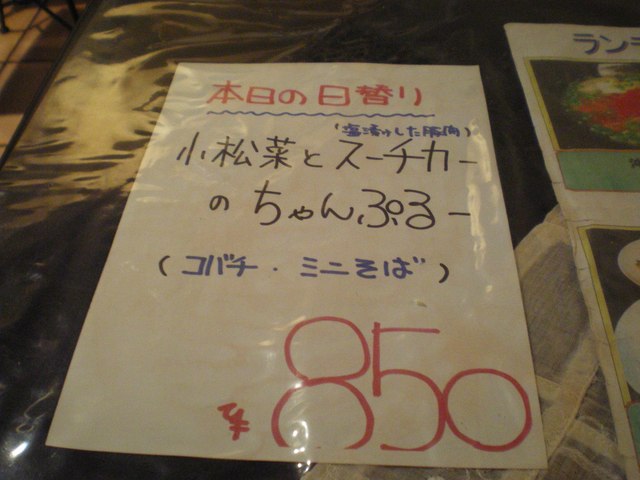 本日の日替り
(塩漬けした豚肉)
小松菜とスーチカー
のちゃんぷるー
(コバチ・ミニそば)
¥850
ラン